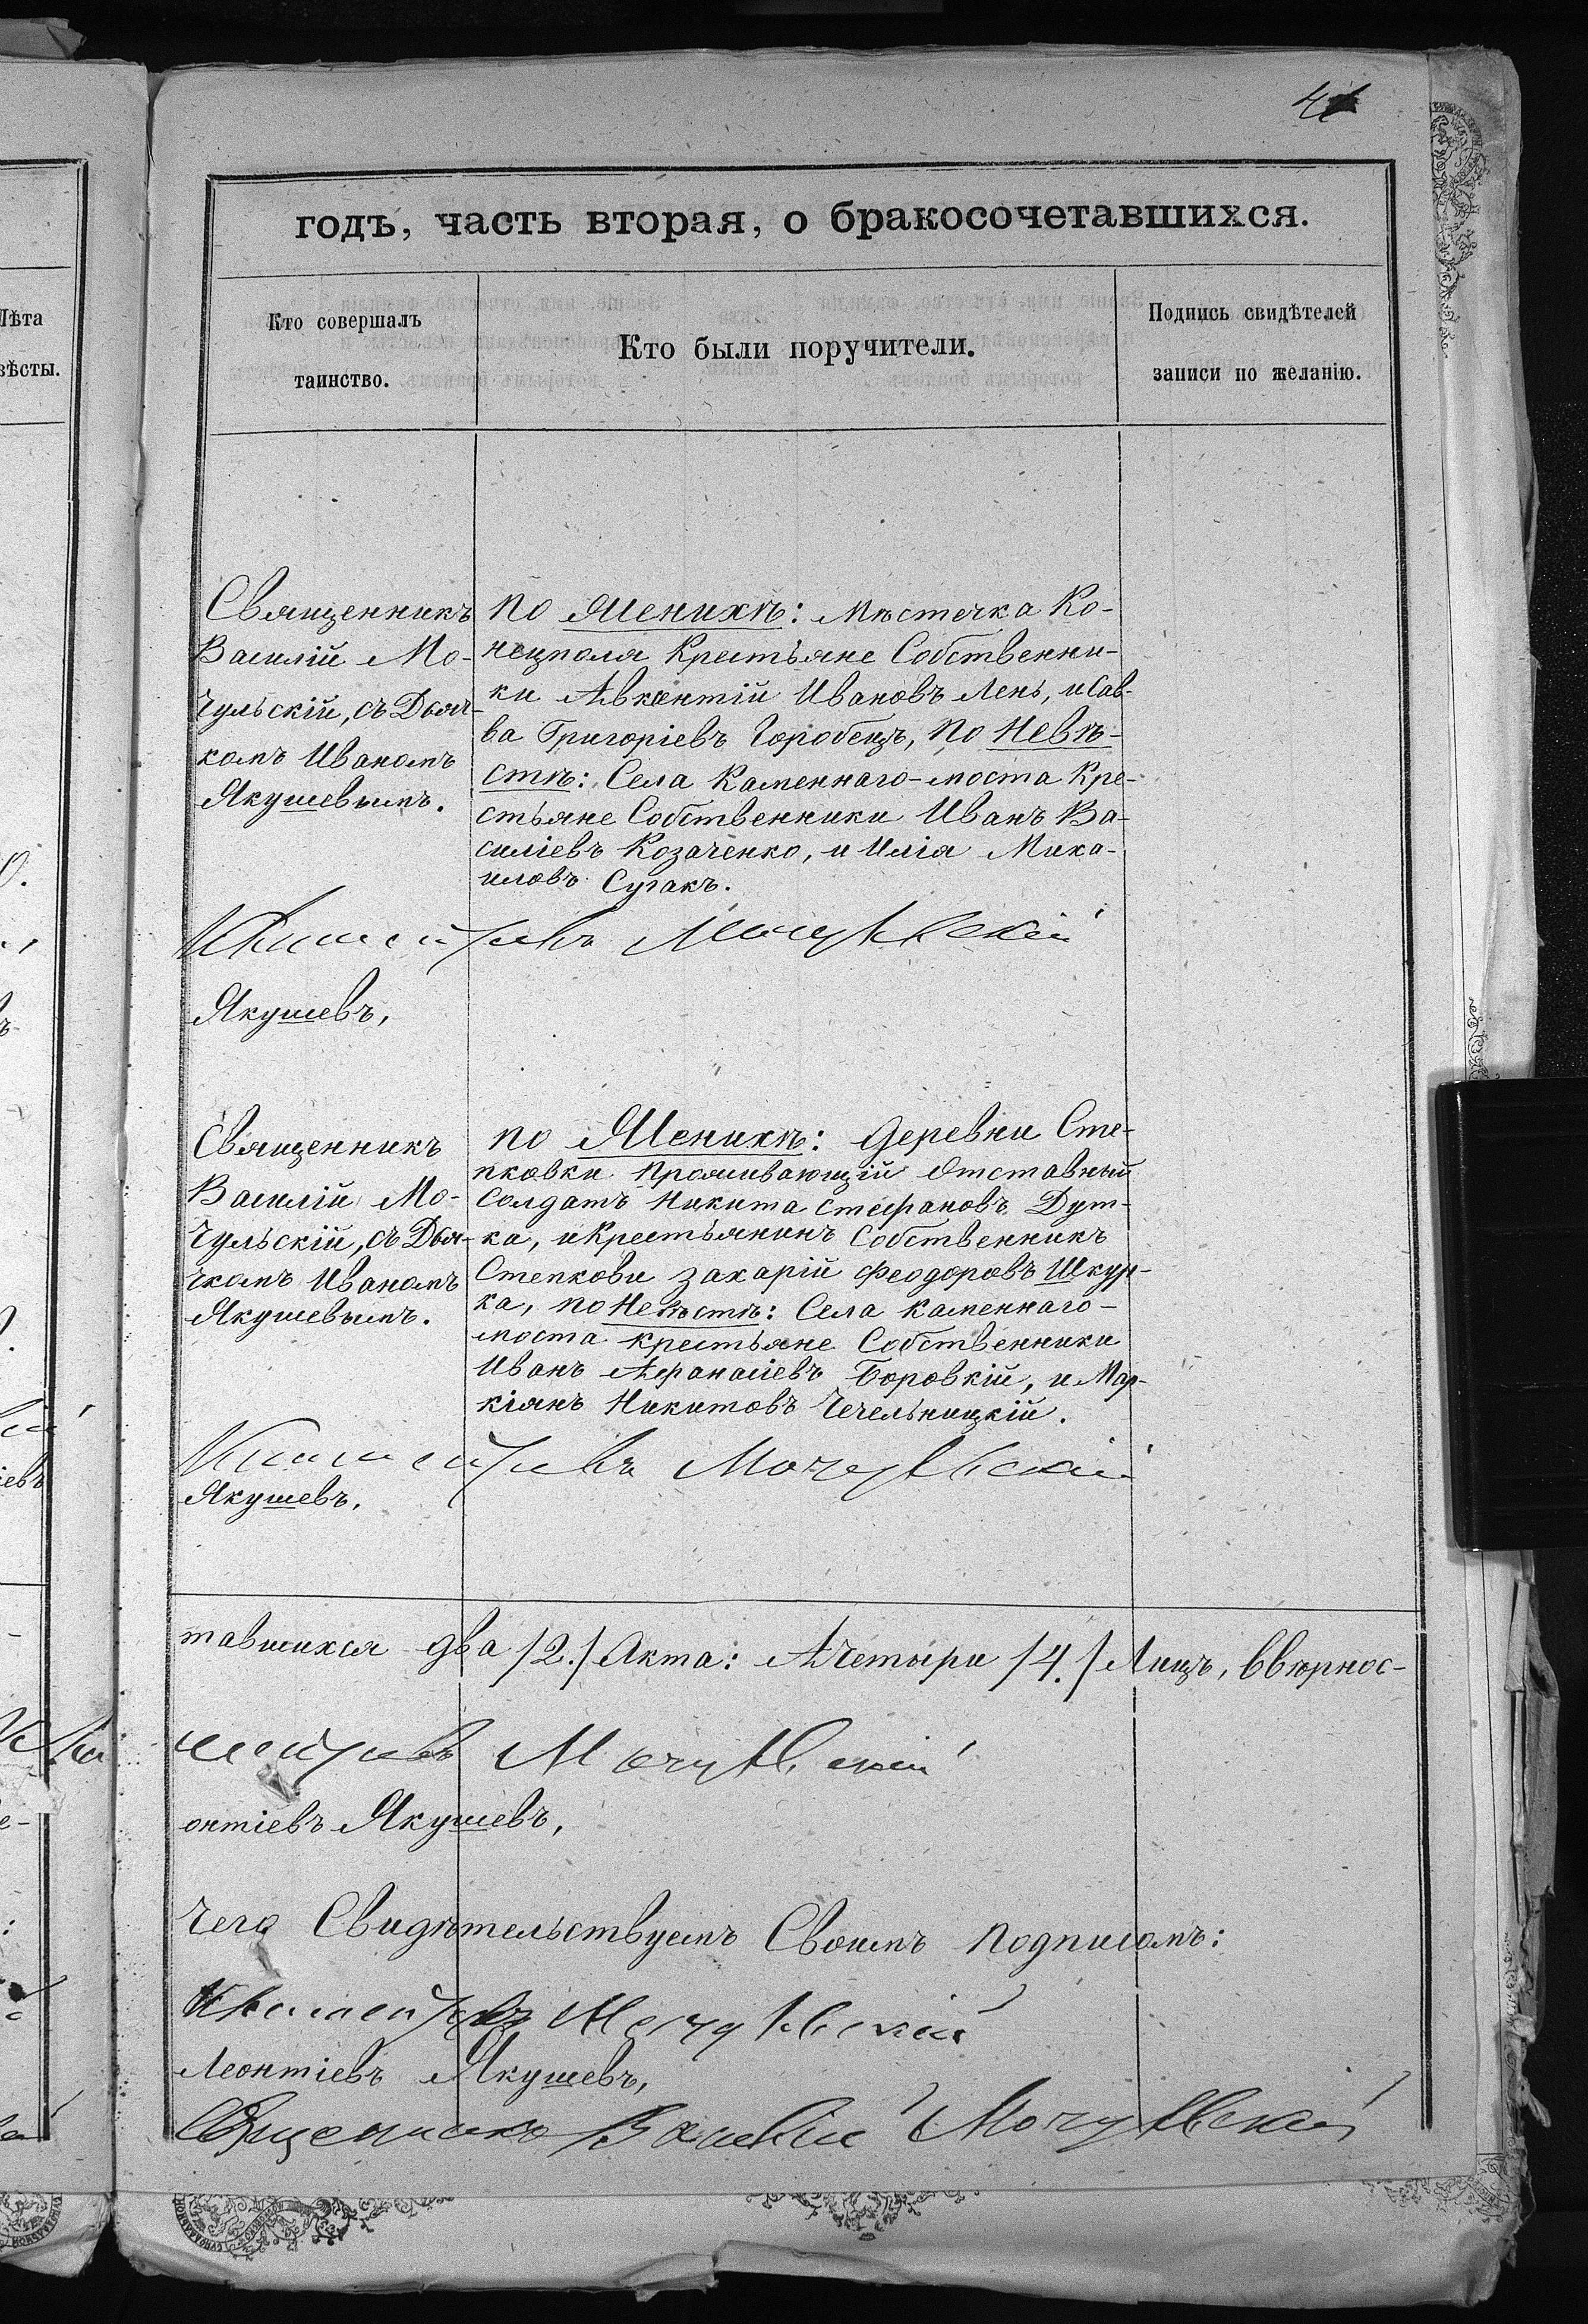 годъ, часть вторая, о бракосочетавшихся.
Кто совершалъ
таинство.
Кто были поручители.
Подпись свидѣтелей
записи по желанію.
Лѣта
вѣсты.
Священникъ
Василій Мо-
чульскій, съ Дьяч-
комъ Иваномъ
Якушевымъ.
По Женихѣ: Мѣстечка Ко-
нецполя Крестьяне Собственни-
ки Авксентій Ивановъ Лень, и Сав-
ва Григоріевъ Горобецъ, По Невѣ-
стѣ: Села Каменнаго-моста Кре-
стьяне Собственники Иванъ Ва-
силіевъ Козаченко, и Илія Миха-
иловъ Сугакъ.
Мочульскій
Якушевъ,
Священникъ
Василій Мо-
чульскій, съ Дья-
чкомъ Иваномъ
Якушевымъ.
по Женихѣ: Деревни Сте-
пковки Проживающій Отставный
Солдатъ Никита Стефановъ Дут-
ка, и Крестьянинъ Собственникъ
Степкови Захарій Феодоровъ Шкур-
ка, по Невѣстѣ: Села Каменнаго-
моста крестьяне Собственники
Иванъ Афанасіевъ Боровкій, и Мар-
кіянъ Никитовъ Чечельницкій.
Мочульскій
Якушевъ.
тавшихся два /2./ Акта: А Четыри /4./ Лицъ, ввѣрнос-
Мочульскій
онтіевъ Якушевъ,
чего Свидѣтельствуемъ Своимъ подписомъ:
Мочульскій
Леонтіевъ Якушевъ,
Священникъ Василій Мочульскій